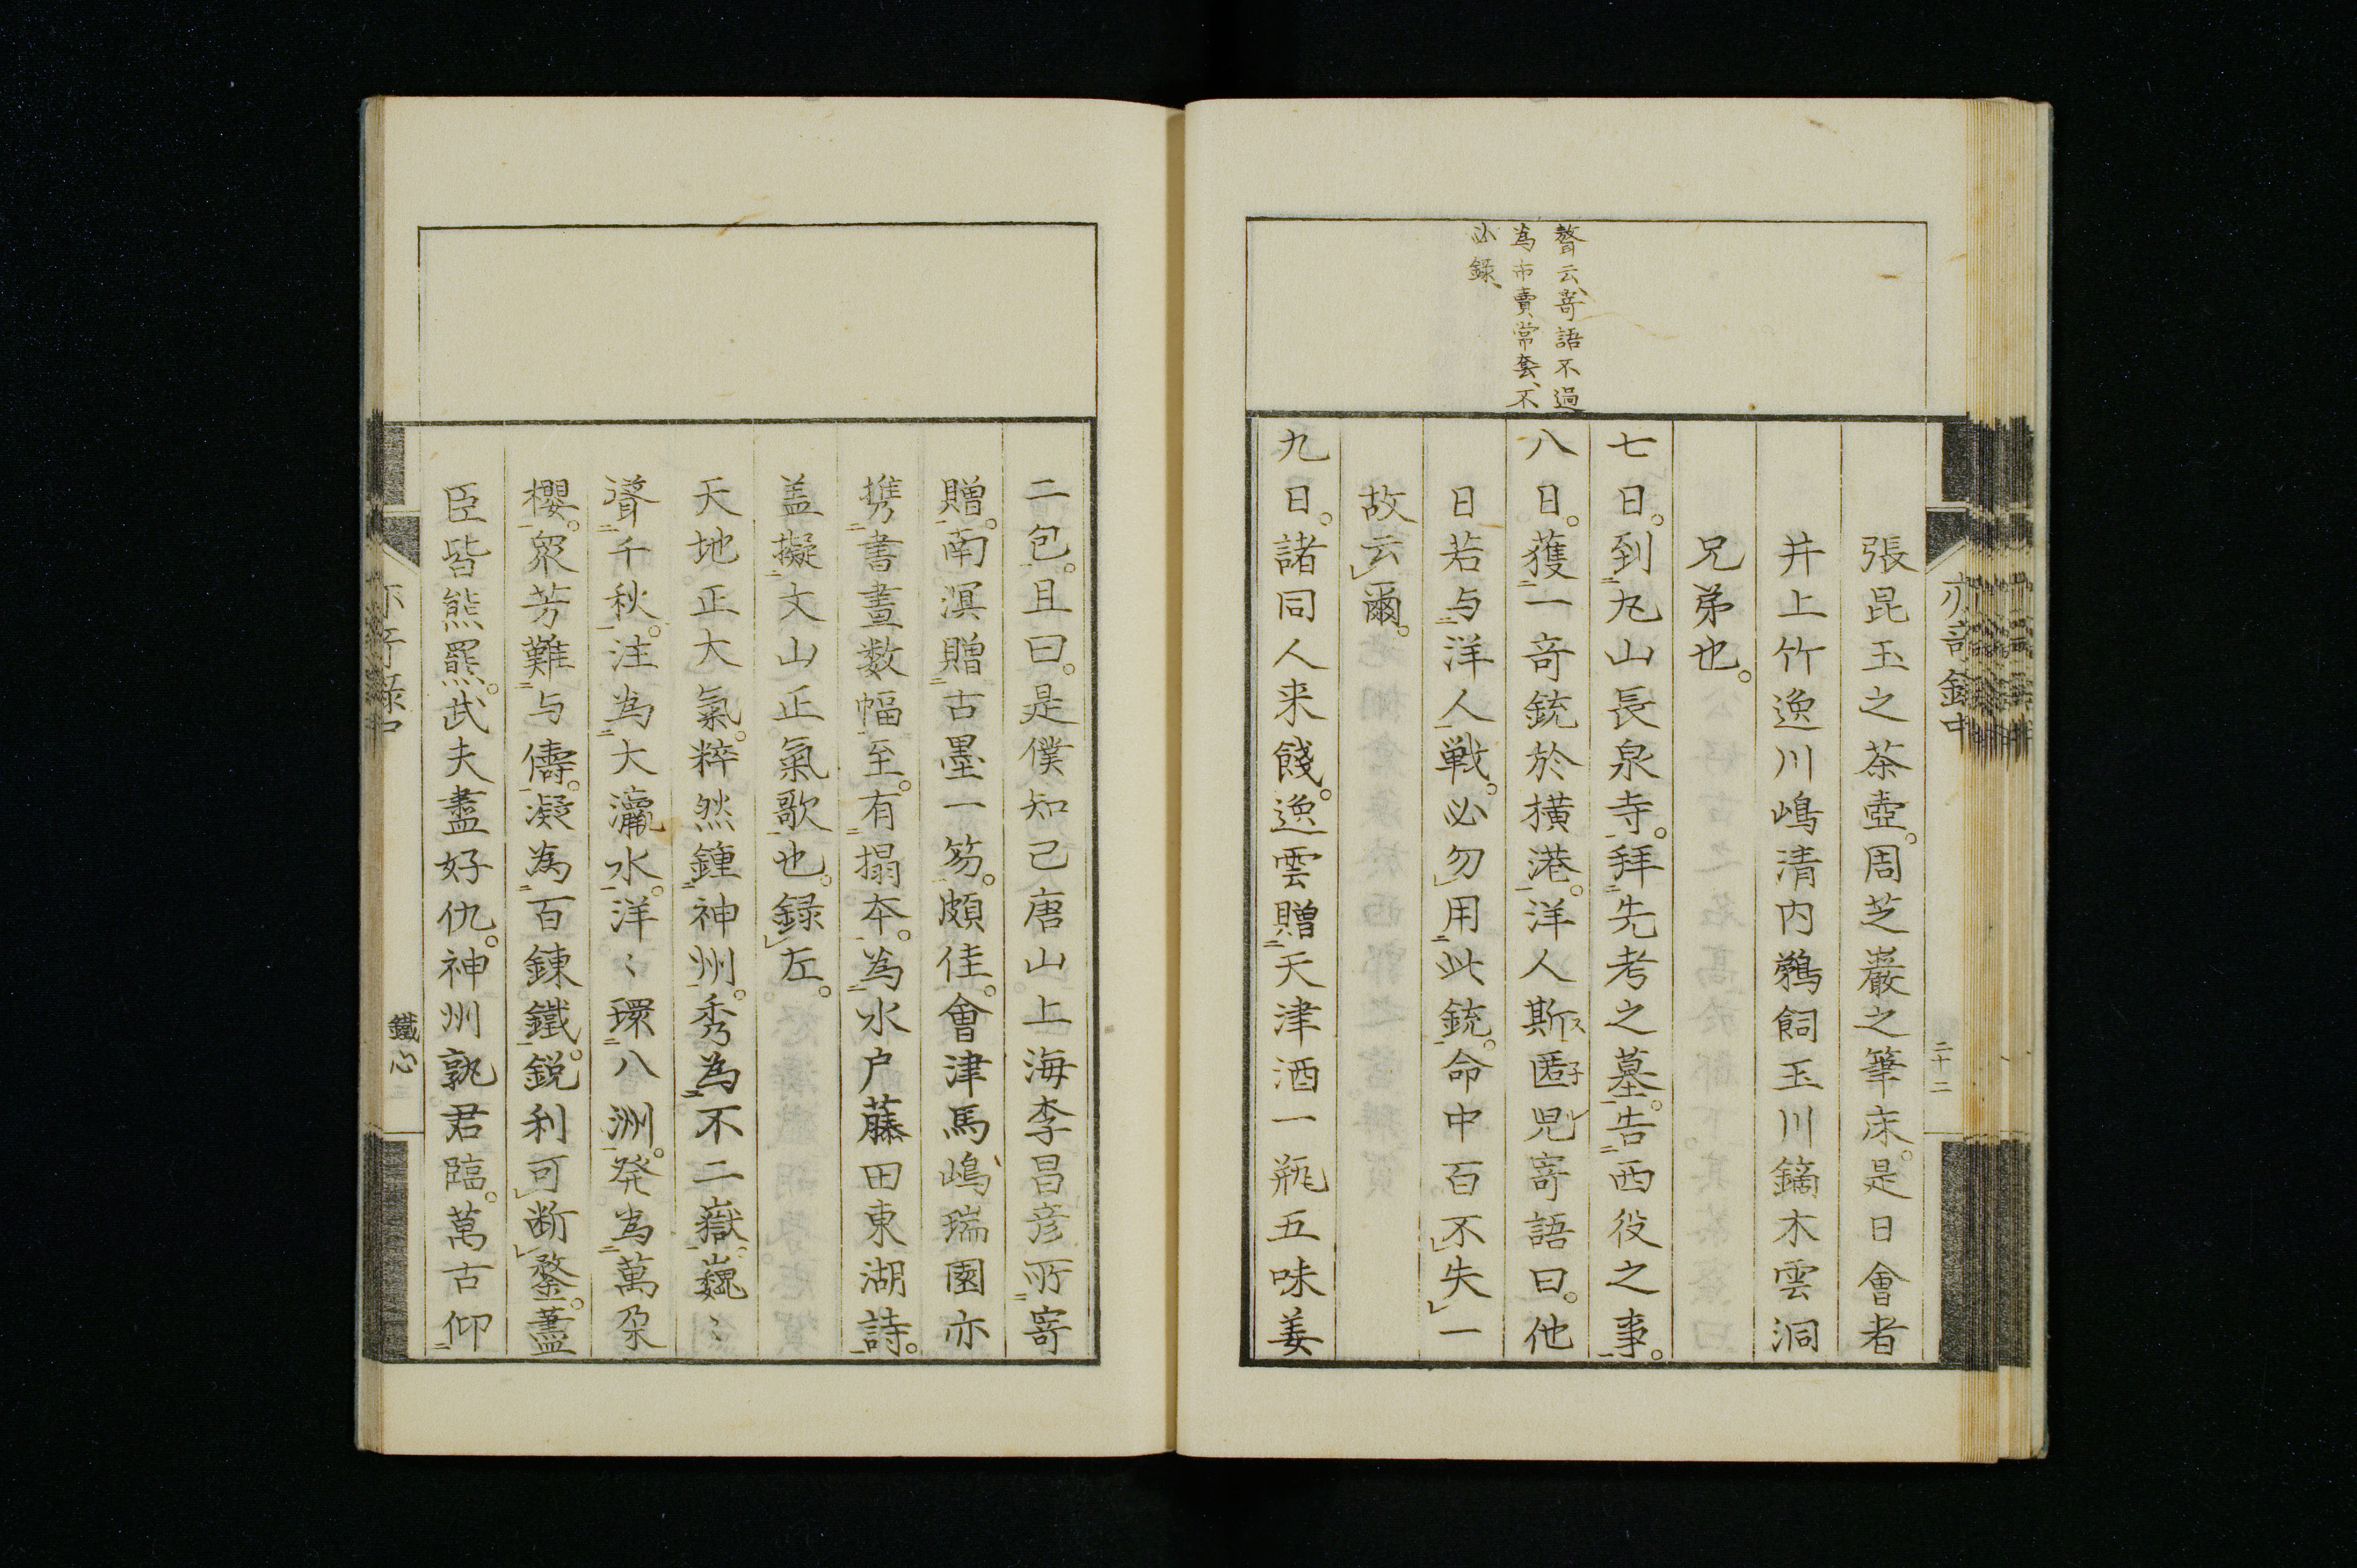 張昆玉之茶壺。周芝巖之筆床。是日會者
井上竹逸川嶋清内鵜飼玉川鏑木雲洞
兄弟也。
七日。到丸山長泉寺。拜先考之墓。告西役之事。
八日。獲一奇銃於横港。洋人斯匿児寄語曰。他
日若与洋人戦。必勿用此銃。命中百不失一
故云爾。
九日。諸同人来餞。逸雲贈天津酒一瓶五味姜
聱云、寄語不過
為市賣常套、不
必錄、
二十二
二包。且曰。是僕知己唐山上海李昌彦所寄
贈。南溟贈古墨一笏。頗佳。會津馬嶋瑞園亦
携書畫数幅至。有搨本。為水户藤田東湖詩。
盖擬文山正氣歌也。録左。
天地正大氣。粹然鍾神州。秀為不二嶽。巍〻
聳千秋。注為大瀛水。洋〻環八洲。発為萬朶
櫻。衆芳難与儔。凝為百錬鐵。鋭利可断鍪。藎
臣皆熊羆。武夫盡好仇。神州孰君臨。萬古仰
鐵心